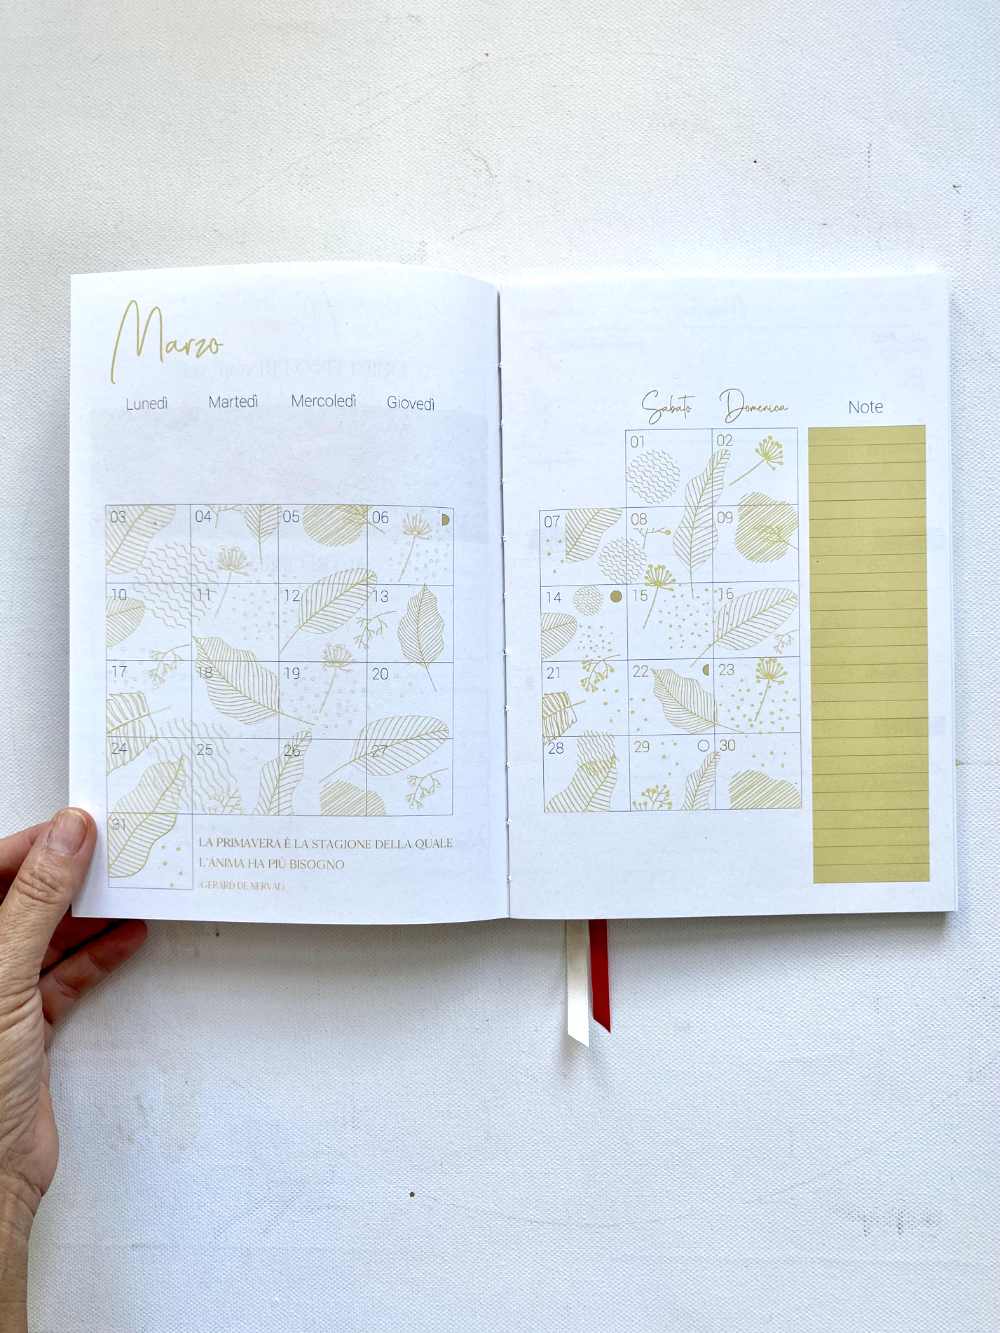 Marzo
Lunedì Martedì Mercoledì Giovedì
03 04 05 06
10 11 12 13
17 18 19 20
24 25 26 27
31
LA PRIMAVERA È LA STAGIONE DELLA QUALE
L'ANIMA HA PIÙ BISOGNO
(GERARD DE NERVAL)
Sabato Domenica Note
01 02
07 08 09
14 15 16
21 22 23
28 29 30